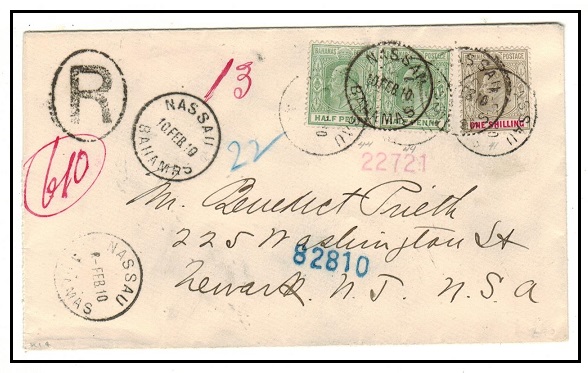 R
13
22
610
NASSAU
10 FEB 10
BAHAMAS
BAHAMAS POSTAGE
HALF PENNY
NASSAU
10 FEB 10
BAHAMAS
POSTAGE
ONE SHILLING
22721
Mr. Benedict Prieth
225 Washington St
82810
Newark. N. J. U. S. A
NASSAU
FEB 10